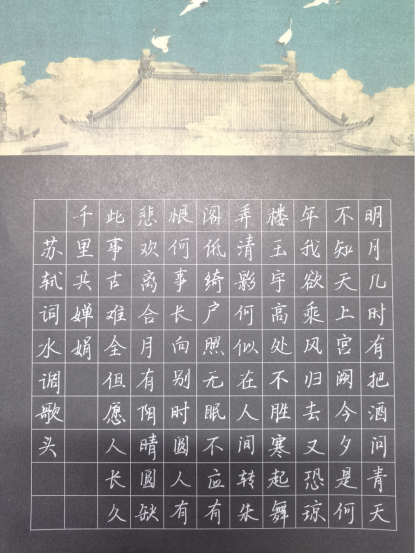 明月几时有把酒问青天
不知天上宫阙今夕是何
年我欲乘风归去又恐琼
楼玉宇高处不胜寒起舞
弄清影何似在人间转朱
阁低绮户照无眠不应有
恨何事长向别时圆人有
悲欢离合月有阳晴圆缺
此事古难全但愿人长久
千里共婵娟
苏轼词水调歌头